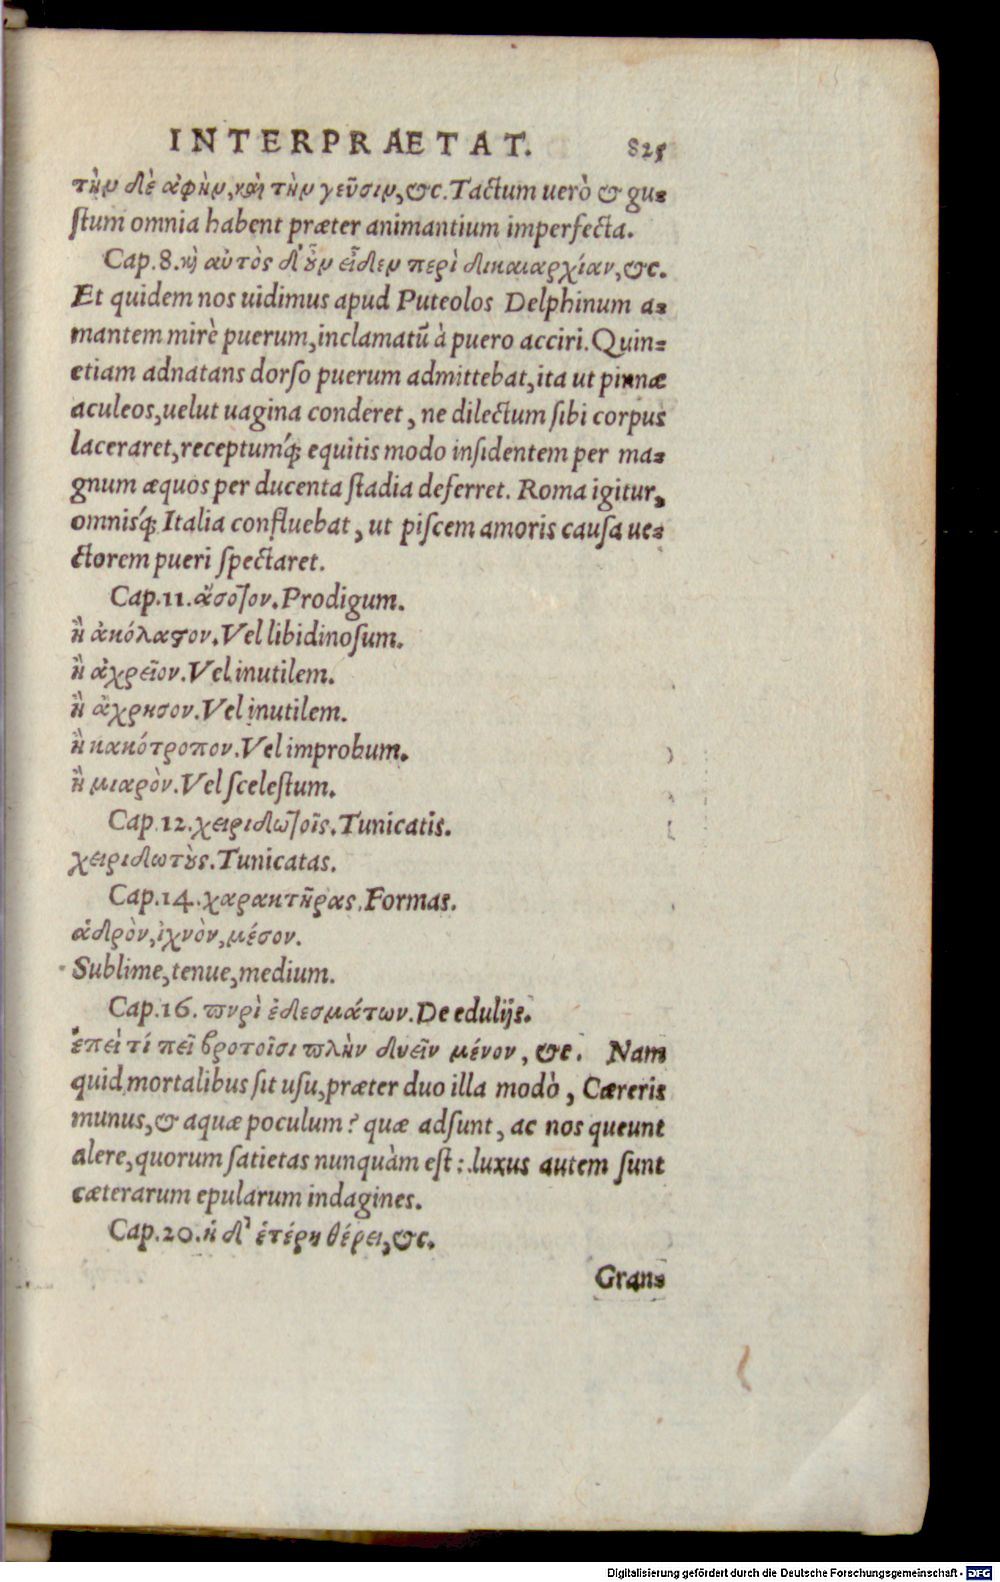 INTERPRAETAT. 825
τὴν δὲ ἁφὴν, καὶ τὴν γεῦσιν, &c. Tactum uerò & gu-
ſtum omnia habent præter animantium imperfecta.
Cap.8. καὶ αὐτὸς δ' οὖν εἶδεν περὶ δικαιαρχίαν, &c.
Et quidem nos uidimus apud Puteolos Delphinum a-
mantem mirè puerum, inclamatũ à puero acciri. Quin-
etiam adnatans dorſo puerum admittebat, ita ut pinnæ
aculeos, uelut uagina conderet, ne dilectum ſibi corpus
laceraret, receptumq́; equitis modo inſidentem per ma-
gnum æquos per ducenta ſtadia deferret. Roma igitur,
omniſq́; Italia confluebat, ut piſcem amoris cauſa ue-
ctorem pueri ſpectaret.
Cap.11. ἄσοτον. Prodigum.
ἢ ἀκόλαστον. Vel libidinoſum.
ἢ ἀχρεῖον. Vel inutilem.
ἢ ἄχρησον. Vel inutilem.
ἢ κακότροπον. Vel improbum.
ἢ μιαρὸν. Vel ſceleſtum.
Cap.12. χειριδωτοῖς. Tunicatis.
χειριδωτοὺς. Tunicatas.
Cap.14. χαρακτῆρας. Formas.
ἁδρὸν, ἰχνὸν, μέσον.
Sublime, tenue, medium.
Cap.16. πνρὶ ἐδεσμάτων. De edulijs.
ἐπεὶ τί πεῖ βροτοῖσι πλὴν δυεῖν μένον, &c. Nam
quid mortalibus ſit uſu, præter duo illa modò, Cæreris
munus, & aquæ poculum? quæ adſunt, ac nos queunt
alere, quorum ſatietas nunquàm eſt: luxus autem ſunt
cæterarum epularum indagines.
Cap.20. ἡ δ' ἑτέρη θέρει, &c.
Gran-
Digitalisierung gefördert durch die Deutsche Forschungsgemeinschaft - DFG